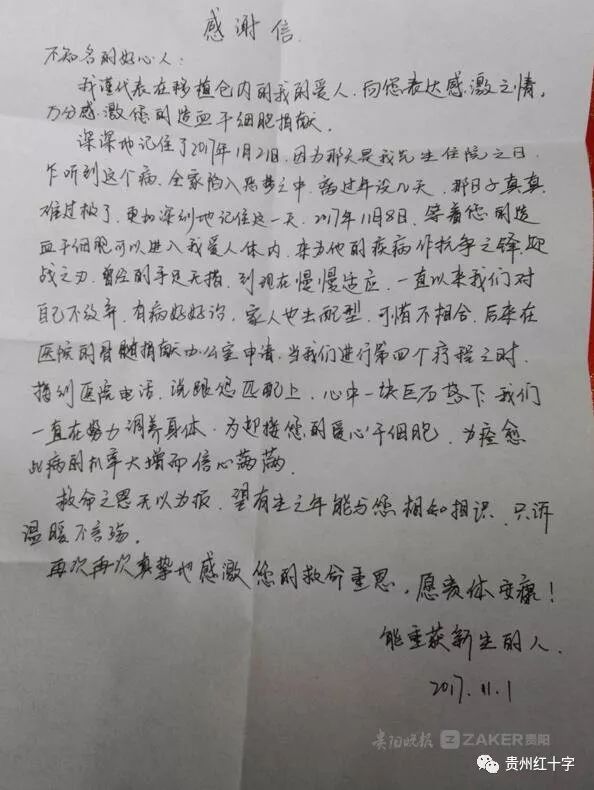 感谢信
不知名的好心人:
我谨代表在移植仓内的我的爱人.向您表达感激之情,
万分感激您的造血干细胞捐献.
深深地记住了2017年1月21日.因为那天是我先生住院之日.
乍听到这个病.全家陷入恐梦之中.离过年没几天.那日子真真
难过极了.更加深刻地记住这一天.2017年11月8日.等着您的造
血干细胞可以进入我爱人体内.来为他的疾病作抗争之锋.迎
战之刃.曾经的手足无措.到现在慢慢适应.一直以来我们对
自己不放弃.有病好好治.家人也去配型.可惜不相合.后来在
医院的骨髓捐献办公室申请.当我们进行第四个疗程之时.
接到医院电话.说跟您匹配上.心中一块巨石落下.我们
一直在努力调养身体.为迎接您的爱心干细胞.为痊愈
此病的机率大增而信心满满.
救命之恩无以为报.望有生之年能与您相知相识.只诉
温暖不言殇.
再次再次真挚地感激您的救命重恩.愿贵体安康!
能重获新生的人.
2017.11.1
贵阳晚报 ZAKER贵阳
贵州红十字